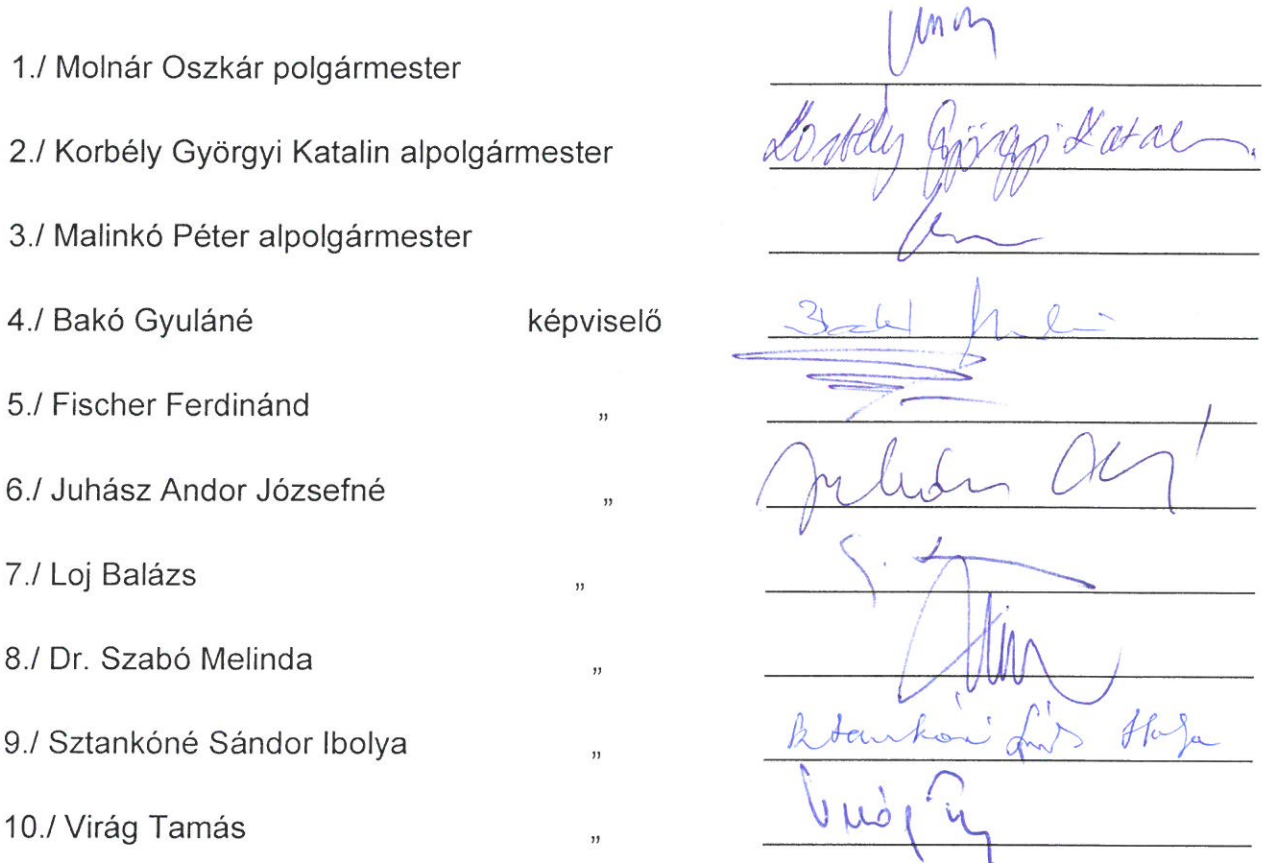 1./ Molnár Oszkár polgármester
2./ Korbély Györgyi Katalin alpolgármester Korbély Györgyi Katalin
3./ Malinkó Péter alpolgármester
4./ Bakó Gyuláné képviselő
5./ Fischer Ferdinánd „
6./ Juhász Andor Józsefné „
7./ Loj Balázs „
8./ Dr. Szabó Melinda „
9./ Sztankóné Sándor Ibolya „
10./ Virág Tamás „ Virág